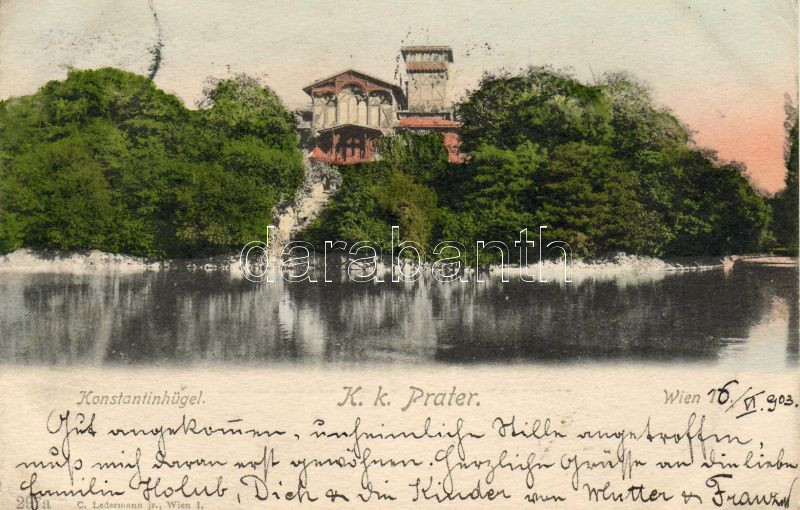 darabanth
Konstantinhügel. K. k. Prater. Wien 16/VI 903.
Gut angekom̅en, unheimliche Stille angetroffen,
muß mich daran erst gewöhnen. Herzliche Grüße an die liebe
Familie Holub, Dich & die Kinder von Mutter & Franz
C. Ledermann jr., Wien I.